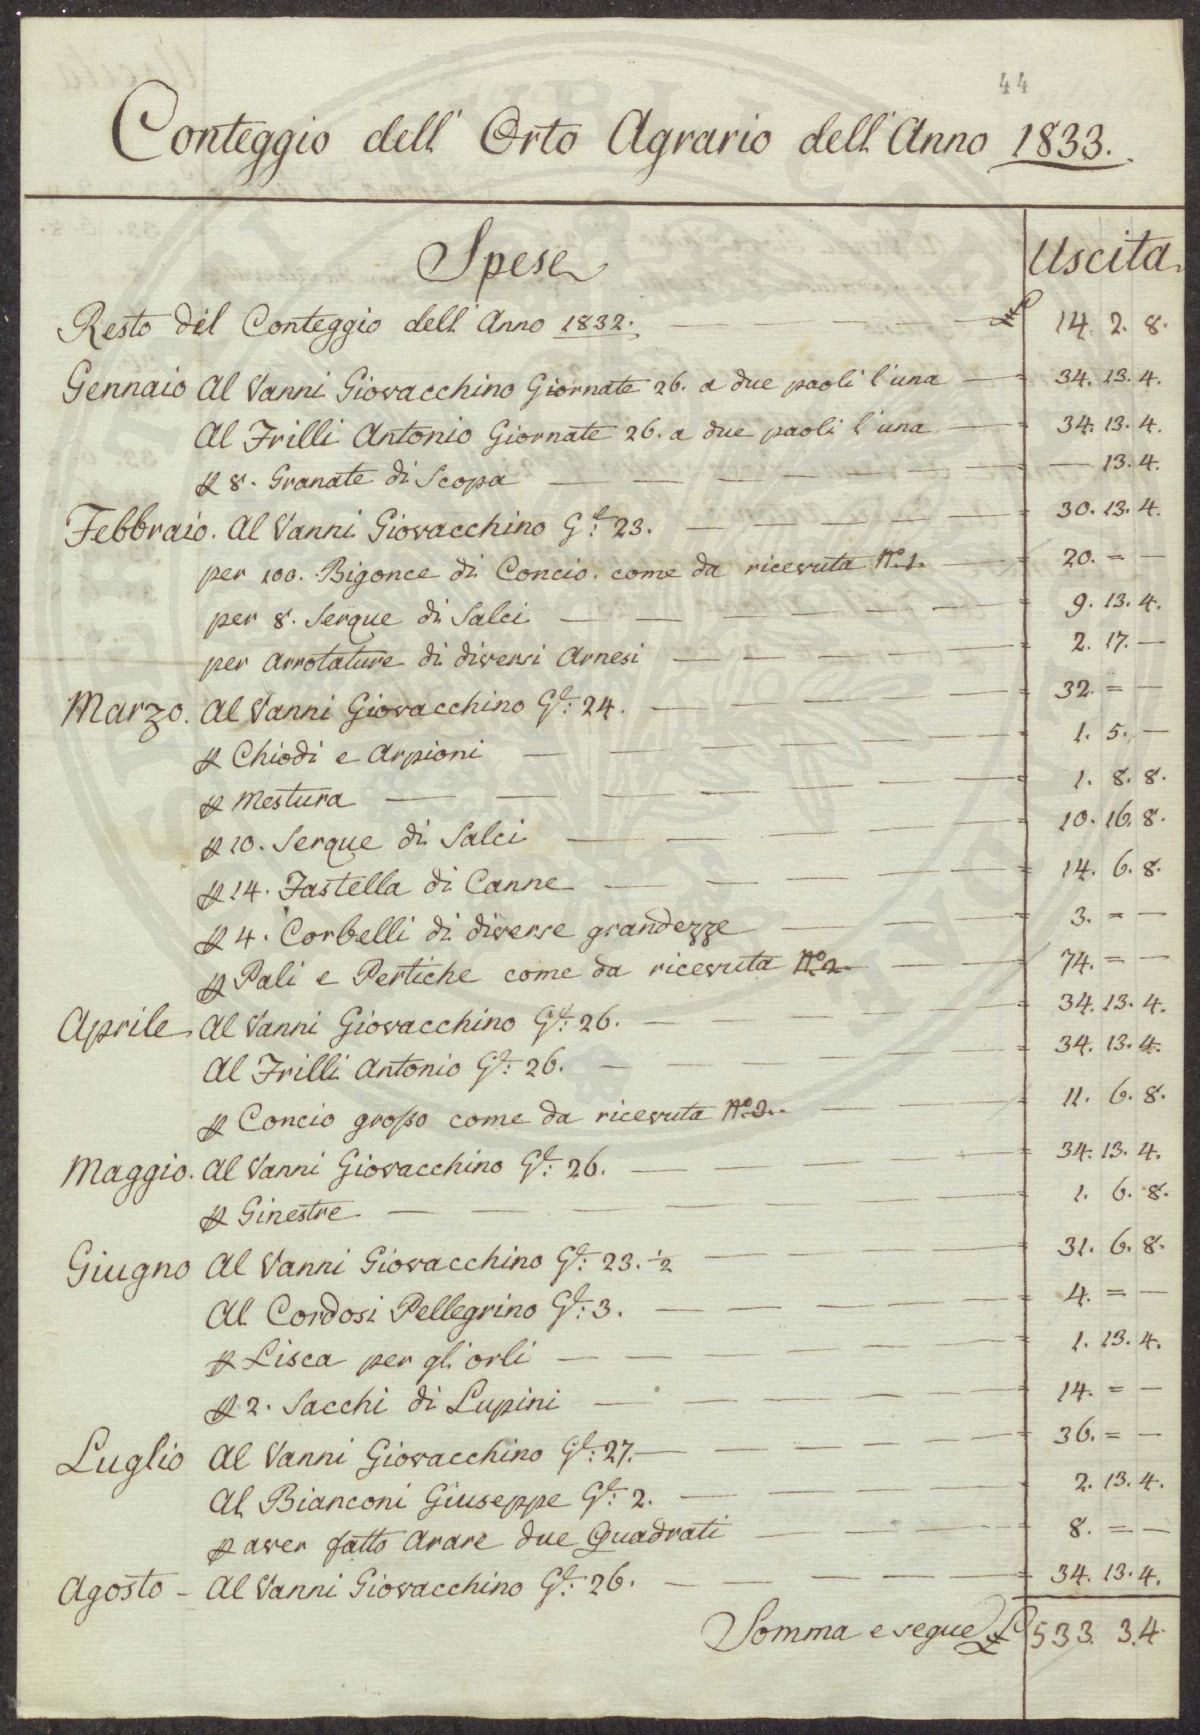 44
Conteggio dell' Orto Agrario dell' Anno 1833.
Spese Uscita
Resto del Conteggio dell' Anno 1832. — — — £ 14. 2. 8.
Gennaio Al Vanni Giovacchino Giornate 26. a due paoli l'una — 34. 13. 4.
Al Frilli Antonio Giornate 26. a due paoli l'una — 34. 13. 4.
p 8. Granate di Scopa — — — — — — 13. 4.
Febbraio. Al Vanni Giovacchino Gte: 23. — — — — 30. 13. 4.
per 100. Bigonce di Concio. come da ricevuta N.o 1. — 20. = —
per 8. Serque di Salci — — — — — 9. 13. 4.
per Arrotature di diversi Arnesi — — — — — 2. 17. —
Marzo. Al Vanni Giovacchino Gte: 24. — — — — — 32. = —
p Chiodi e Arpioni — — — — — 1. 5. —
p Mestura — — — — — — 1. 8. 8.
p 10. Serque di Salci — — — — 10. 16. 8.
p 14. Fastella di Canne — — — — — 14. 6. 8.
p 4. Corbelli di diverse grandezze — — — 3. = —
p Pali e Pertiche come da ricevuta N.o 2. — — — 74. = —
Aprile Al Vanni Giovacchino Gte: 26. — — — — 34. 13. 4.
Al Frilli Antonio Gte: 26. — — — — — 34. 13. 4.
p Concio grosso come da ricevuta N.o 3. — — — 11. 6. 8.
Maggio. Al Vanni Giovacchino Gte: 26. — — — — — 34. 13. 4.
p Ginestre — — — — — — — 1. 6. 8.
Giugno Al Vanni Giovacchino Gte: 23. ½ — — — — 31. 6. 8.
Al Cordosi Pellegrino Gte: 3. — — — — — 4. = —
p Lisca per gli orli — — — — — — 1. 13. 4.
p 2. Sacchi di Lupini — — — — — 14. = —
Luglio Al Vanni Giovacchino Gte: 27. — — — — — 36. = —
Al Bianconi Giuseppe Gte: 2. — — — — — 2. 13. 4.
p aver fatto Arare due Quadrati — — — — 8. = —
Agosto — Al Vanni Giovacchino Gte: 26. — — — — 34. 13. 4.
Somma e segue £ 533. 3. 4